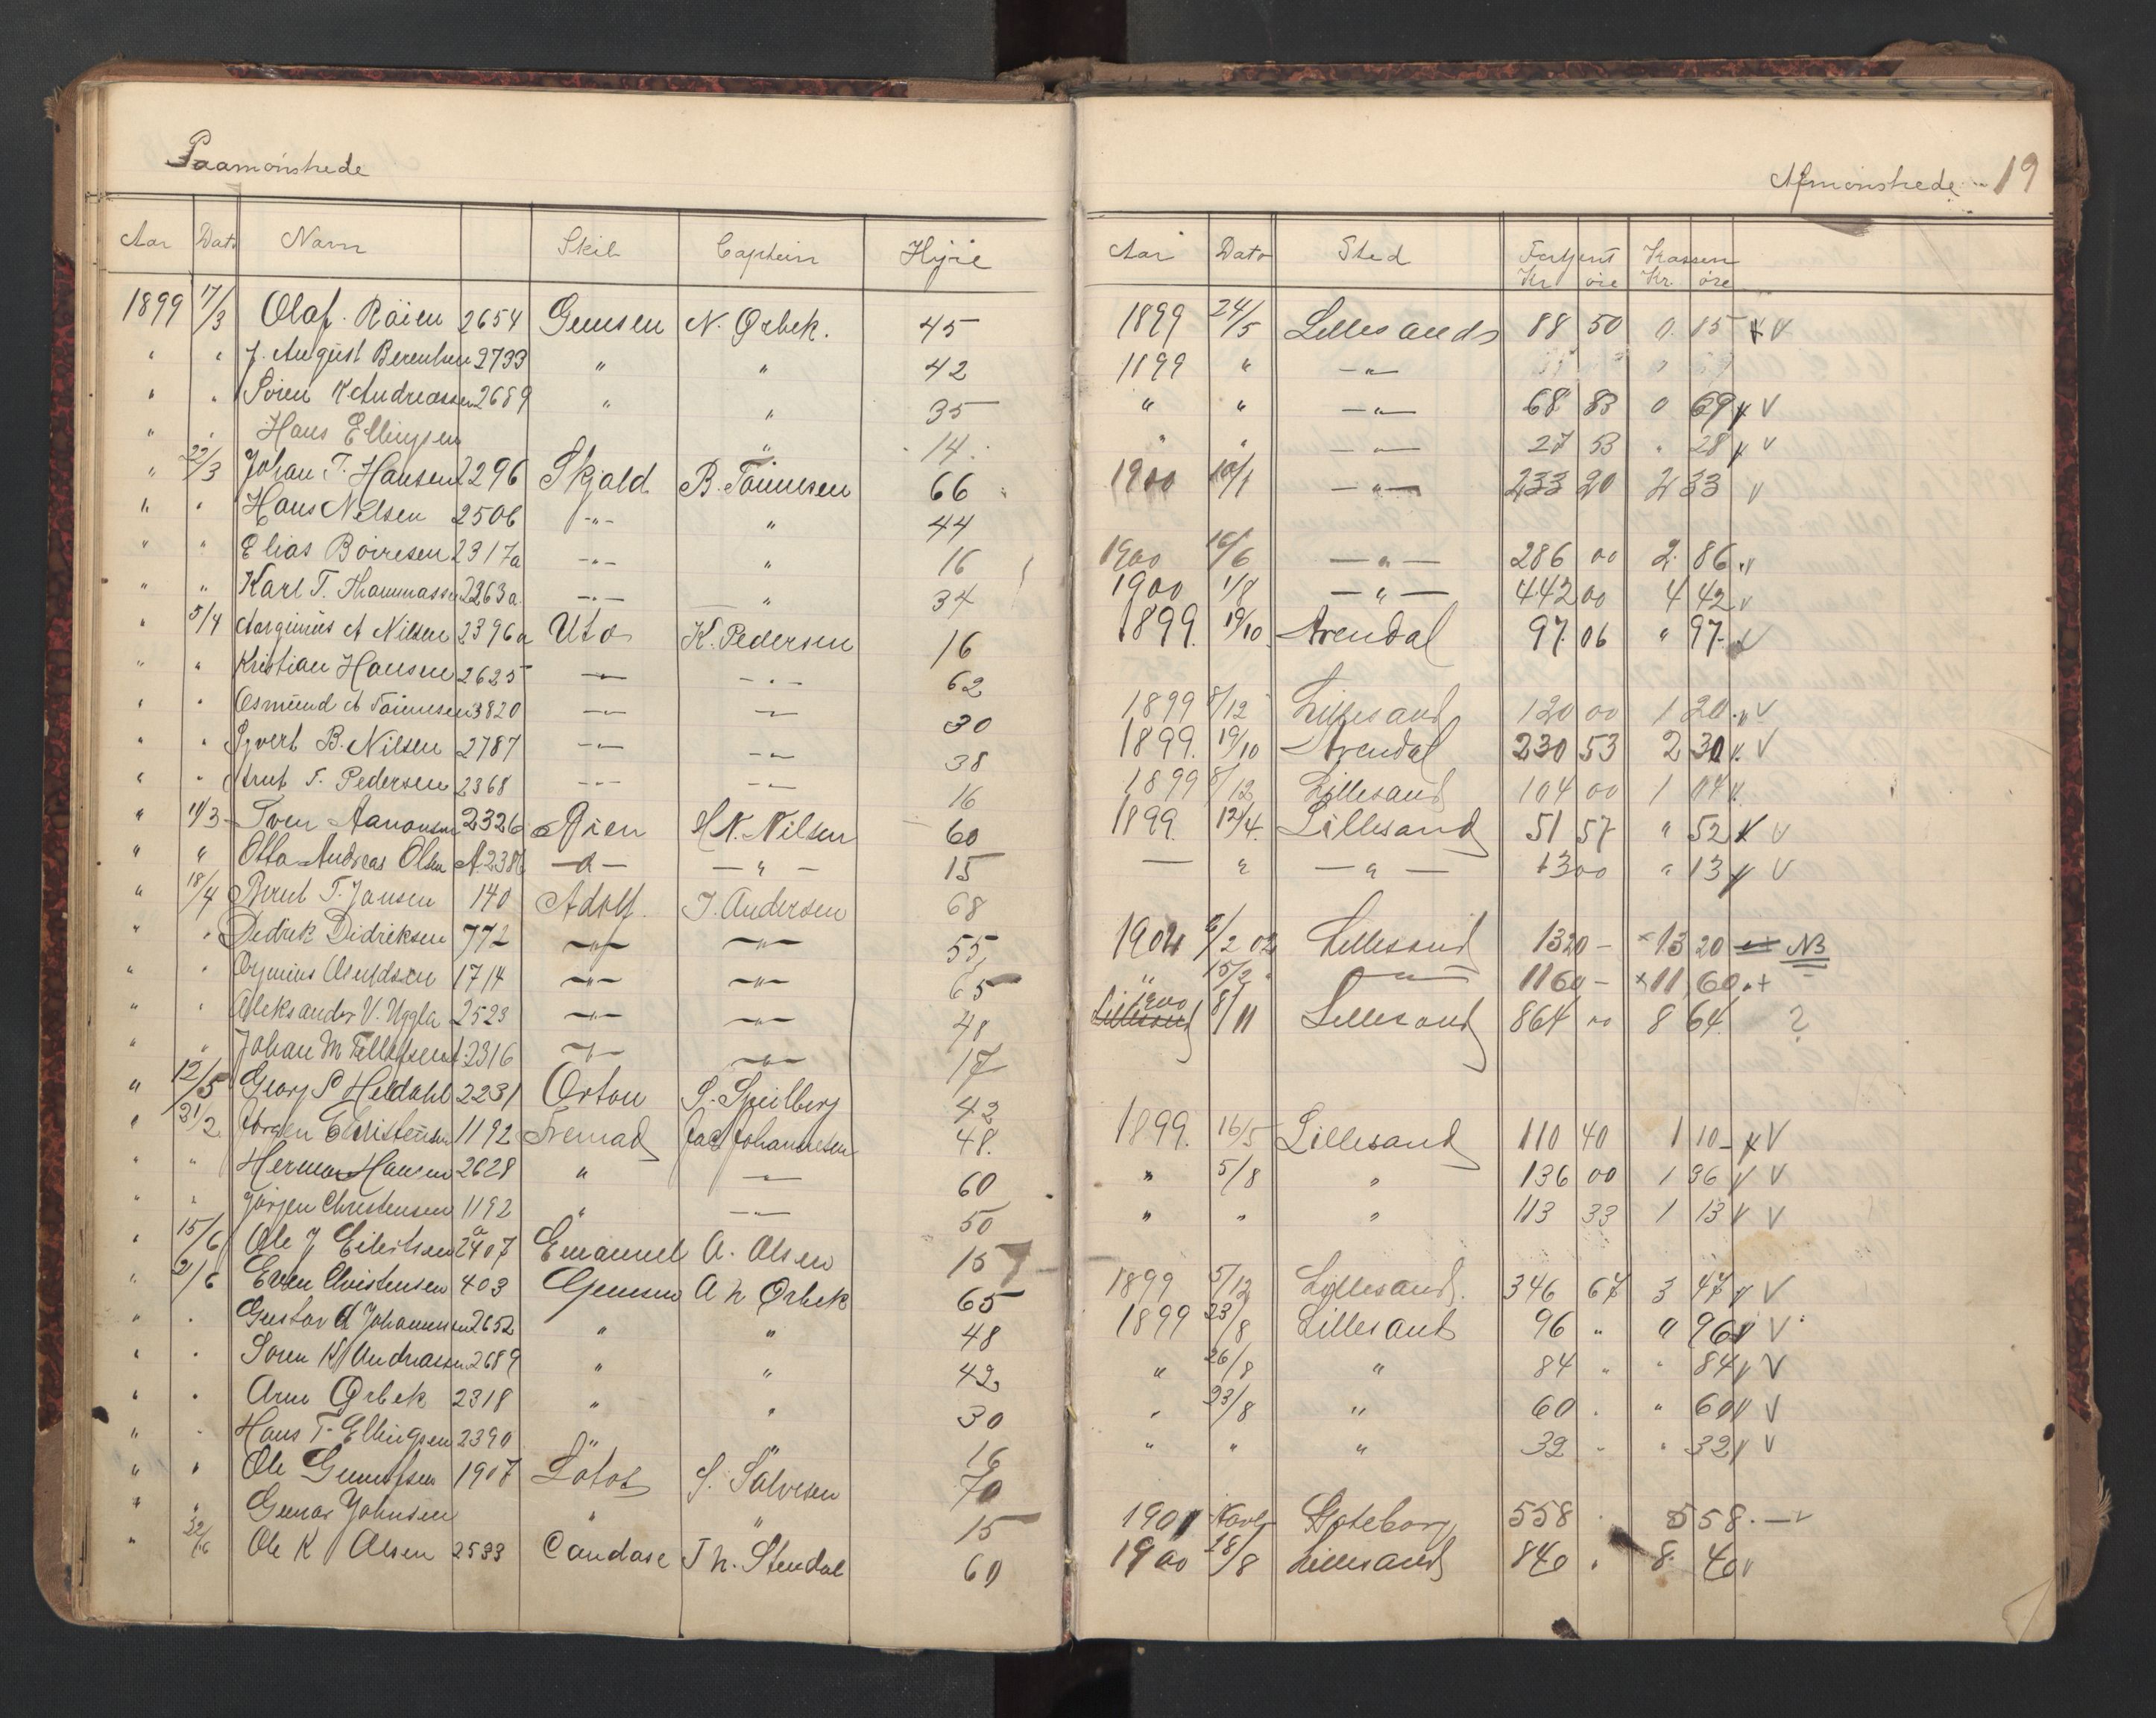 Paamönstrede
Afmönstrede 19
Aar Dato Navn Skib Captein Hyre Aar Dato Sted Fortjent Kr öre Kassen Kr. öre
1899 17/3 Olaf Röien 2654 Gemsen N. Ørbek. 45 1899 24/5 Lillesand 88 50 0. 15 V
" " J. August Berentsen 2733 " " 42 1899 " —"—
" " Sören K Andreassen 2689 " " 35 " " —"— 68 83 0 69 V
" " Hans Ellingsen " 14 " " —"— 27 53 " 28 V
" 22/3 Johan T. Hansen 2296 Skjold B. Tönnesen 66 1900 10/1 —"— 233 20 2 33 V
" " Hans Nilsen 2506 —"— " 44
" " Elias Börresen 2317a —"— " 16 1900 16/6 —"— 286 00 2 86 V
" " Karl T. Thommassen 2263a —"— " 34 1900 1/8 —"— 442 00 4 42 V
" 5/4 A Nilsen 2396a Uto K. Pedersen 16 1899. 19/10 Arendal 97 06 " 97. V
" " Kristian Hansen 2625 —"— —"— 62
" " Osmund A Tönnesen 3820 —"— —"— 30 1899 8/12 Lillesand 120 00 1 20 V
" " Syvert B. Nilsen 2787 —"— —"— 38 1899. 19/10 Arendal 230 53 2 30 V
" " Arnt T. Pedersen 2368 —"— —"— 16 1899 8/12 Lillesand 104 00 1 04
" 11/3 Sven Aanonsen 2326 Öien H N. Nilsen 60 1899. 12/4. Lillesand 51 57 " 52 V
" " Otto Andreas Olsen A. 2386 —"— —"— 15 — " —"— 13 00 " 13 V
" 18/4 Bernt T. Jansen 140 Adolf. T. Andersen 68
" " Didrik Didriksen 772 —"— —"— 55 1902 6/2 02 Lillesand 1320 — × 13 20 NB
" " Amundsen 1714 —"— —"— 65 " 15/2 " —"— 1160 — × 11,60 +
" " Aleksander V. Uggla 2523 —"— —"— 48 Lillesand 1900 8/11 Lillesand 864 00 8 64 ?
" " Johan M Tellefsen A. 2316 —"— —"— 17
" 12/5 Georg S Heldahl 2231 Orton S. Speilberg 42
" 21/2 Jörgen Christensen 1192 Fremad Jac Johannesen 48. 1899. 16/5 Lillesand 110 40 1 10 V
" " Herman Hansen 2628 " —"— 60 " 5/8 " 136 00 1 36 V V
" " Jörgen Christensen 1192 " —"— 50 " " " 113 33 1 13 V V
" 15/6 Ole J Eilertsen a 2407 Emanuel A. Olsen 15
" 21/6 Even Christensen 403 Gemsen A N Ørbek 65 1899 5/12 Lillesand. 346 67 3 47 V
" " Gustav A Johannesen 2652 " " 48 1899 23/8 Lillesand 96 " " 96 V
" " Sören K Andreassen 2689 " " 42 " 26/8 " 84 " " 84 V V
" " Arne Ørbek 2318 " " 30 " 23/8 " 60 . " 60 V
" " Hans T. Ellingsen 2390 " " 16 " " " 32 " " 32 V
" " Ole Gundersen 1907 Lotos S. Salvesen 70
" " Gunnar Johnsen " " 15 1901 Göteborg 558 . 5 58. —
" 22/6 Ole K Olsen 2533 Candace Th. Stendal 60 1900 28/8 Lillesand 840 . 8. 40 V